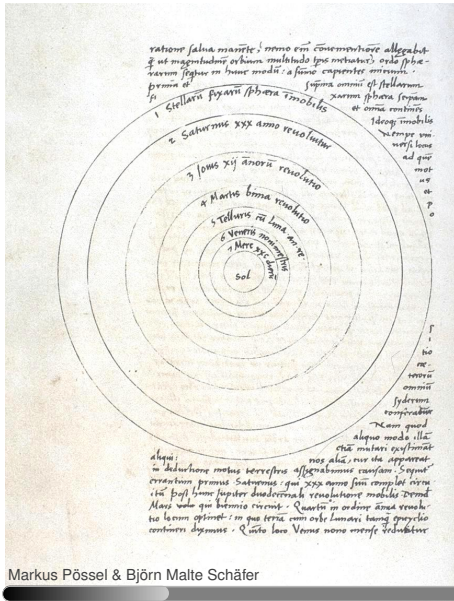 ratione salua manente, nemo em̃ conuenientiorẽ allegabit
q̃ ut magnitudinẽ orbium multitudo tp̃is metiatur, ordo sphæ-
rarum sequitur in hunc modũ: a sũmo capientes initium.
prima et suprema omniũ est stellarum
fi xarum sphæra seipsam
et omnia continẽs
Ideoq; imobilis
nempe vni
versi locus
ad quẽ
mot
us
et
p
o
1 Stellarũ fixarũ sphæra imobilis
2 Saturnus xxx anno reuoluitur
3 Iouis xij annorũ reuolutio
4 Martis bima reuolutio
5 Telluris cũ Luna an. re.
6 Veneris nonimestris
7 Merc
Sol
f
i
tio
cæ-
terorũ
omniũ
syderum
conferatur
Nam quod
aliquo modo illã
etiã mutari existimãt
aliqui: nos aliã, cur ita appareat
in deductione motus terrestris assignabimus causam. Sequitur
errantium primus Saturnus: qui xxx anno suũ complet circu
itũ post hunc Iupiter duodecennali reuolutione mobilis. Demũ
Mars qui biennio circuit. Quartũ in ordine ãnua reuolu-
tio locum optinet: in quo terrã cum orbe Lunari tanq̃ epicyclio
contineri diximus. Quinto loco Venus nono mense reducitur
Markus Pössel & Björn Malte Schäfer